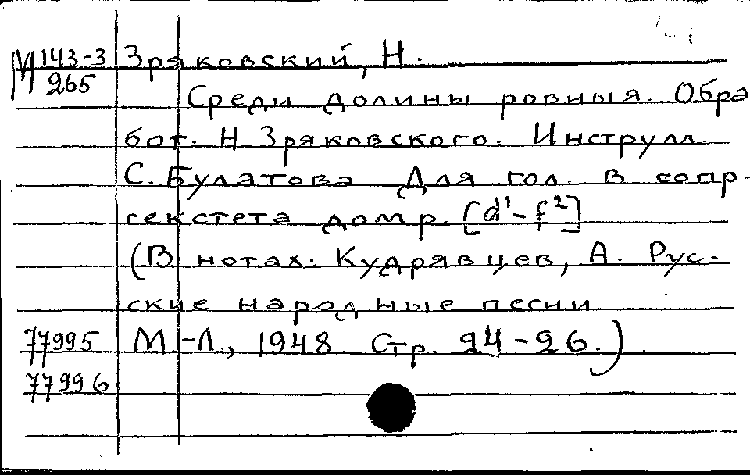 М 143-3 Зряковский, Н.
265
Среди долины ровныя. Обра
бот. Н Зряковского. Инструм.
С. Булатова Для гол. в сопр.
секстета домр. [d¹-f²]
(В нотах: Кудрявцев, А. Рус-
ские народные песни
77995 М-Л., 1948 Стр. 24-26.)
77996